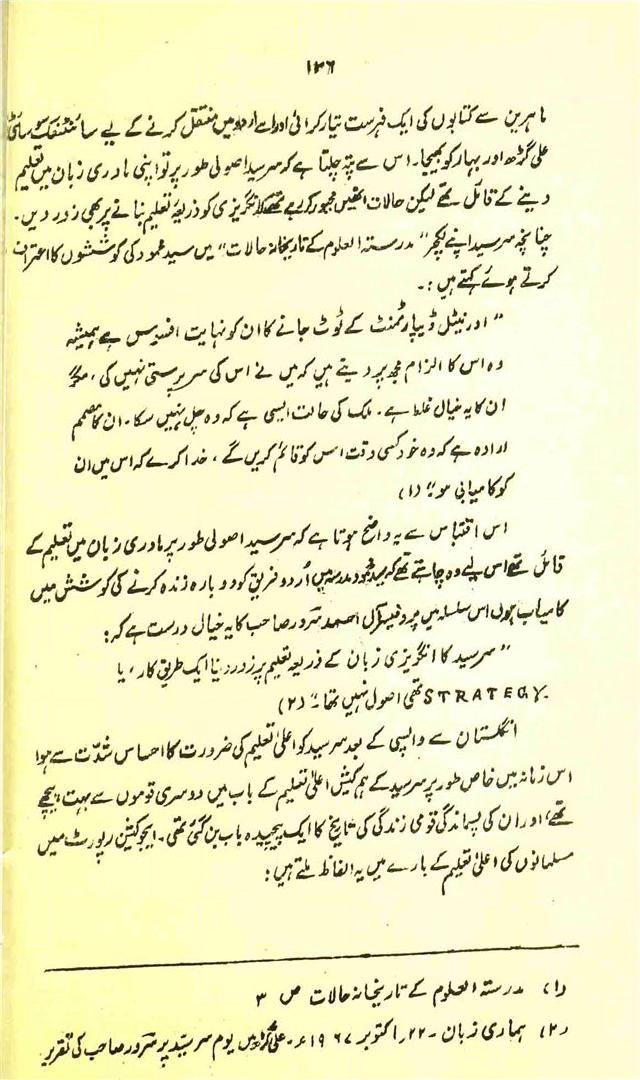 ۱۳۶
ماہرین سے کتابوں کی ایک فہرست تیار کرائی اور اسے اردو میں منتقل کرنے کے لیے سائنٹفک سوسائٹی
علی گڑھ اور بہار کو بھیجا۔ اس سے پتہ چلتا ہے کہ سرسید اصولی طور پر تو اپنی مادری زبان میں تعلیم
دینے کے قائل تھے لیکن حالات انھیں مجبور کر رہے تھے کہ انگریزی کو ذریعۂ تعلیم بنانے پر بھی زور دیں۔
چنانچہ سرسید اپنے لیکچر "مدرستہ العلوم کے تاریخانہ حالات" میں سید محمود کی کوششوں کا اعتراف
کرتے ہوئے کہتے ہیں:۔
"اورنیٹل ڈیپارٹمنٹ کے ٹوٹ جانے کا ان کو نہایت افسوس ہے ہمیشہ
وہ اس کا الزام مجھ پر دیتے ہیں کہ میں نے اس کی سرپرستی نہیں کی، مگر
ان کا یہ خیال غلط ہے۔ ملک کی حالت ایسی ہے کہ وہ چل نہیں سکا۔ ان کا مصمم
ارادہ ہے کہ وہ خود کسی وقت اس کو قائم کریں گے، خدا کرے کہ اس میں ان
کو کامیابی ہو۔" (۱)
اس اقتباس سے یہ واضح ہوتا ہے کہ سرسید اصولی طور پر مادری زبان میں تعلیم کے
قائل تھے اس لیے وہ چاہتے تھے کہ سید محمود مدرسہ میں اُردو فریق کو دوبارہ زندہ کرنے کی کوشش میں
کامیاب ہوں اس سلسلہ میں پروفیسر آل احمد سرور صاحب کا یہ خیال درست ہے کہ:
"سرسید کا انگریزی زبان کے ذریعہ تعلیم پر زور دینا ایک طریق کار، یا
STRATEGY تھی اصول نہیں تھا۔" (۲)
انگلستان سے واپسی کے بعد سرسید کو اعلیٰ تعلیم کی ضرورت کا احساس شدّت سے ہوا
اس زمانہ میں خاص طور پر سرسید کے ہم کیش اعلیٰ تعلیم کے باب میں دوسری قوموں سے بہت پیچھے
تھے، اور ان کی پسماندگی قومی زندگی کی تاریخ کا ایک پیچیدہ باب بن گئی تھی۔ ایجوکیشن رپورٹ میں
مسلمانوں کی اعلیٰ تعلیم کے بارے میں یہ الفاظ ملتے ہیں:
(۱) مدرستہ العلوم کے تاریخانہ حالات ص ۳
(۲) ہماری زبان۔ ۲۲؍ اکتوبر ۱۹۶۷ء۔ علی گڑھ میں یوم سرسیّد پر سرور صاحب کی تقریر